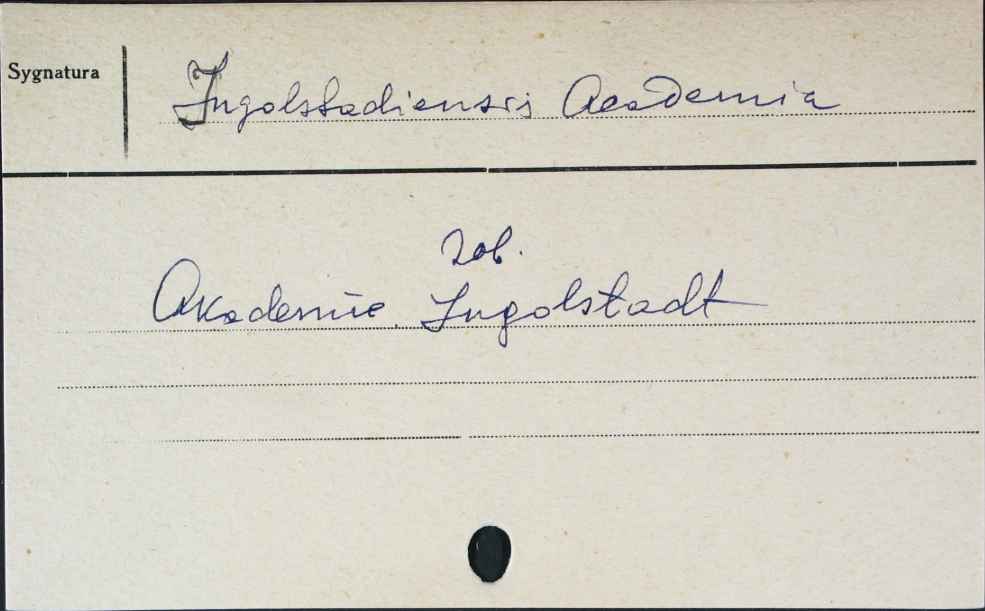 Sygnatura
Ingolstadiensis Academia
zob.
Akademie Ingolstadt